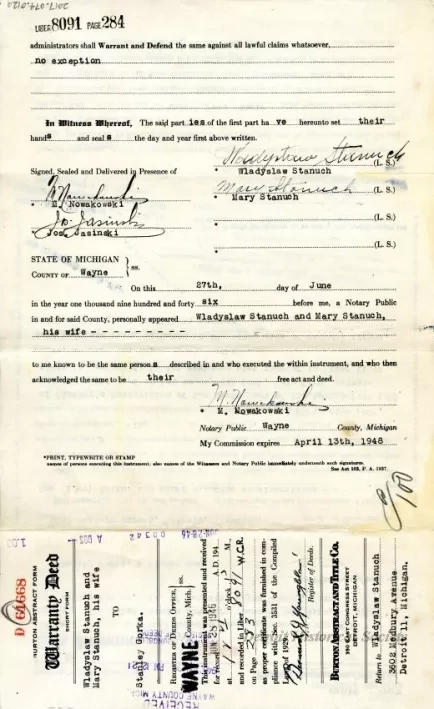 2017.074.012
LIBER 8091 PAGE 284
administrators shall Warrant and Defend the same against all lawful claims whatsoever,
no exception
In Witness Whereof, The said part ies of the first part ha ve hereunto set their
hand s and seal s the day and year first above written.
Signed, Sealed and Delivered in Presence of
Wladyslaw Stanuch (L. S.)
* Wladyslaw Stanuch
M. Nowakowski
Mary Stanuch (L. S.)
* M. Nowakowski
* Mary Stanuch
Jos. Jasinski
(L. S.)
Jos. Jasinski
*
(L. S.)
*
STATE OF MICHIGAN
COUNTY OF Wayne
ss.
On this 27th, day of June
in the year one thousand nine hundred and forty six before me, a Notary Public
in and for said County, personally appeared Wladyslaw Stanuch and Mary Stanuch,
his wife - - - - - - - - -
to me known to be the same person s described in and who executed the within instrument, and who then
acknowledged the same to be their free act and deed.
M. Nowakowski
* M. Nowakowski
Notary Public Wayne County, Michigan
My Commission expires April 13th, 1948
*PRINT, TYPEWRITE OR STAMP
names of persons executing this instrument; also names of the Witnesses and Notary Public immediately underneath such signatures.
See Act 103, P. A. 1937.
100
D 61668
BURTON ABSTRACT FORM
Warranty Deed
SHORT FORM
Wladyslaw Stanuch and
Mary Stanuch, his wife
TO
Stanley Gorka.
REGISTER OF DEEDS OFFICE,
WAYNE County, Mich.
ss.
This instrument was presented and received
for record JUN 28 1946 A. D. 194
at o'clock M.,
and recorded in Liber 8091 W.C.R.
on Page
as proper certificate was furnished in com-
pliance with Sec. 3531 of the Compiled
Laws of 1929.
Register of Deeds.
BURTON ABSTRACT AND TITLE CO.
350 EAST CONGRESS STREET
DETROIT, MICHIGAN
Return to Wladyslaw Stanuch
3602 Medbury Avenue
Detroit 11, Michigan.
RECEIVED
WAYNE COUNTY MICH